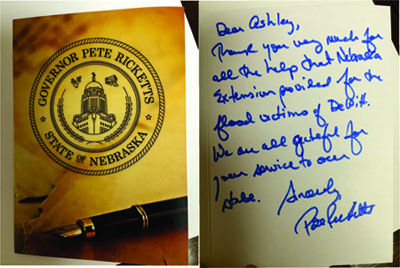 GOVERNOR PETE RICKETTS
STATE OF NEBRASKA
Dear Ashley,
Thank you very much for
all the help that Nebraska
Extension provided for the
flood victims of DeWitt.
We are all grateful for
your service to our
state.
Sincerely,
Pete Ricketts